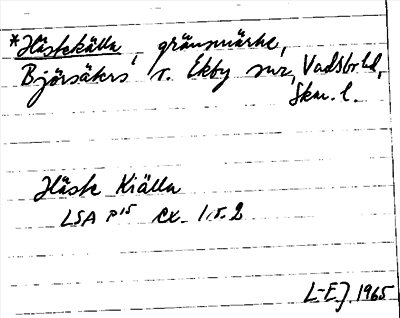 *Hästekälla, gränsmärke,
Björsäters o. Ekby snr, Vadsbo hd,
Skar. l.
Häste Kiälla
LSA P15 ex. 1 s. 2
L-E.J. 1965